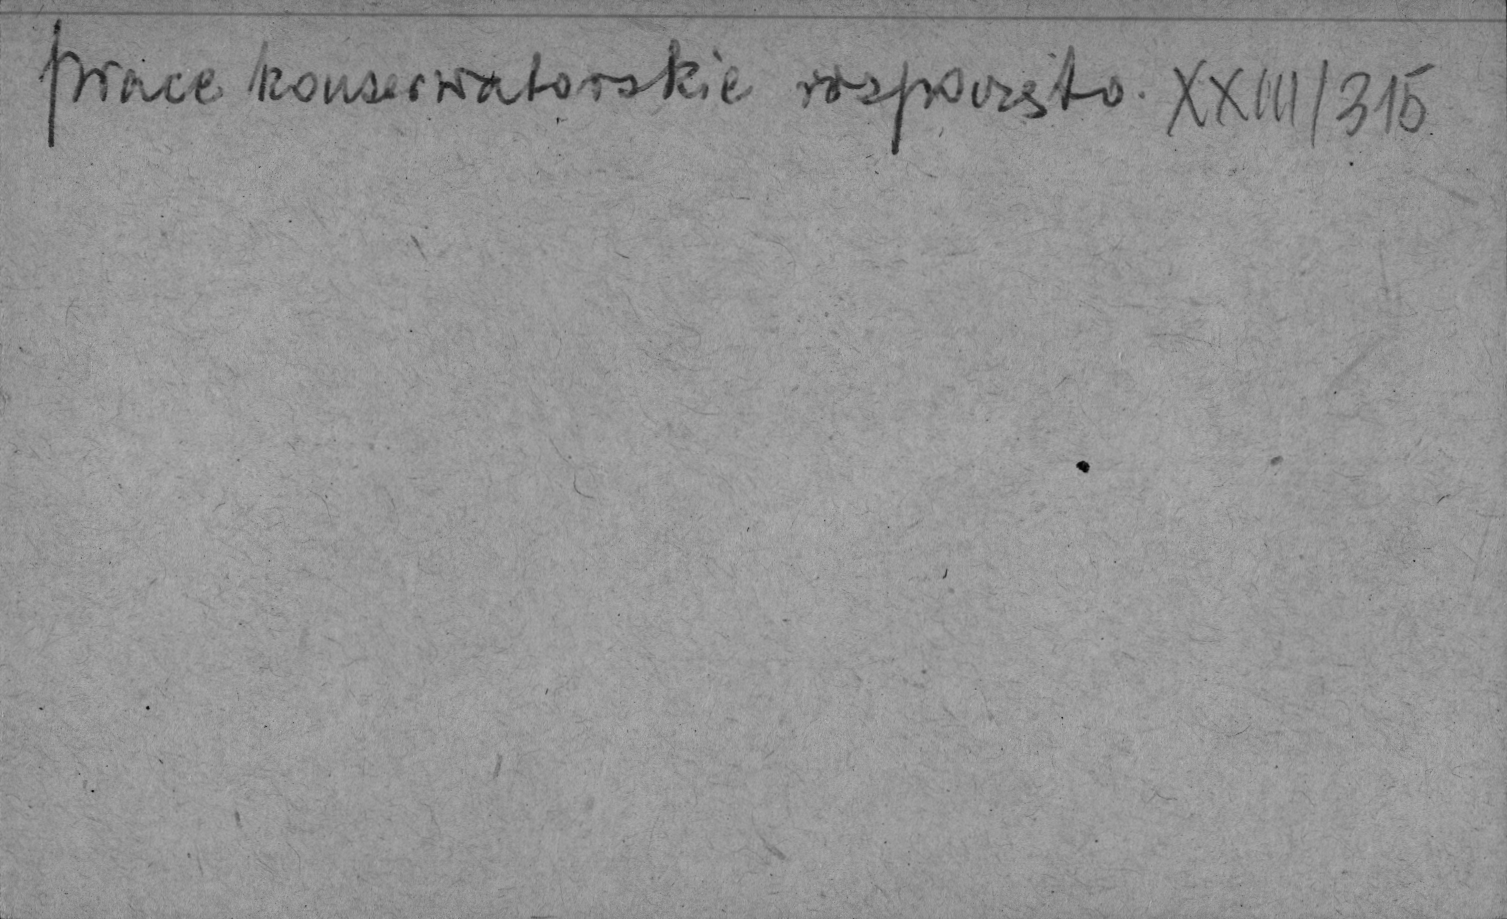 prace konserwatorskie rozpoczęto. XXIII/315